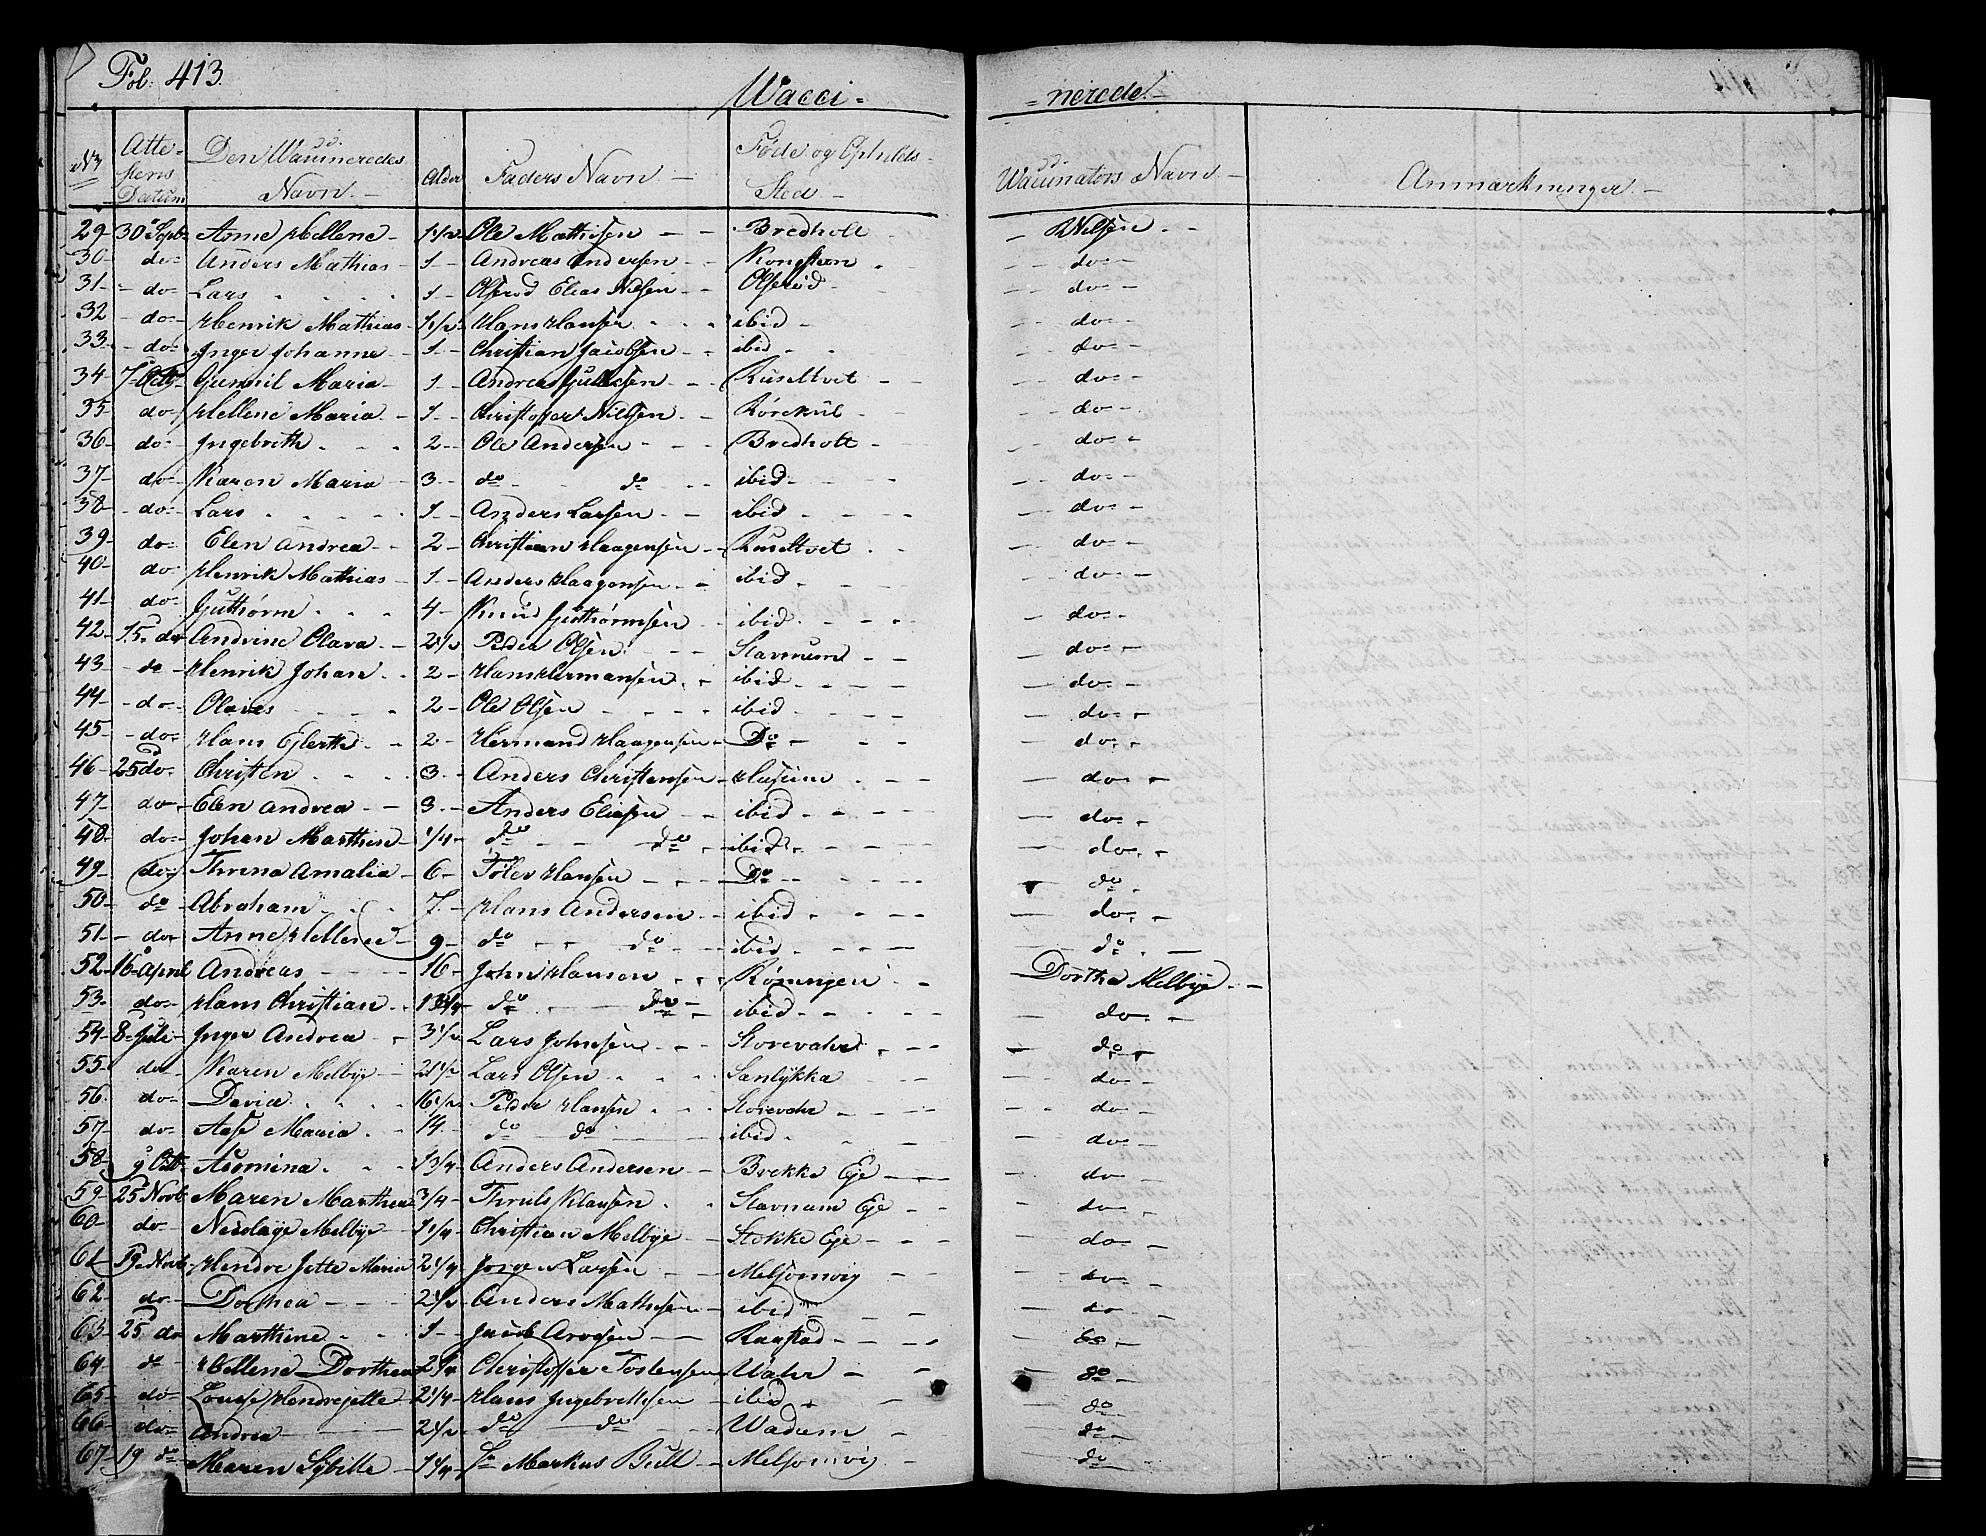 Fol: 413.
Wacci- -nerede.
No Attestens Datum Den Waccineredes Navn Alder Faders Navn Føde og Opholds Sted Waccinators Navn Anmærkninger
29 30 Sept Anne Hellene 1 1/2 Ole Mathisen Bredholt Nilsen
30 do Anders Mathias 1 Andreas Andersen do
31 do Lars 1 Elias Nilsen do
32 do Henrik Mathias 1 1/2 Hans Hansen ibid do
33 do Inger Johanne 1 Christian Jacobsen ibid do
34 7 Octb Gunnil Maria 1 Andreas Gullicsen Ruseltvet do
35 do Hellene Maria 1 Christoffer Nilsen Rørekul do
36 do Ingebreth 2 Ole Andersen Bredholt do
37 do Karen Maria 3 do do ibid do
38 do Lars 1 Anders Larsen ibid do
39 do Elen Andrea 2 Christian Haagensen Ruseltvet do
40 do Henrik Mathias 1 Anders Haagensen ibid do
41 do Guthørm 4 Knud Guthørmsen ibid do
42 15 do Andrine Olava 2 1/2 Peder Olsen Stavnum do
43 do Henrik Johan 2 Hans Hermansen ibid do
44 do Olaves 2 Ole Olsen ibid do
45 do Hans Ejlerth 2 Hermand Haagensen Do do
46 25 do Christen 3 Anders Christensen Husum do
47 do Elen Andrea 3 Anders Eliasen ibid do
48 do Johan Marthin 1/4 do do ibid do
49 do Thrina Amalia 6 Tolev Hansen Do do
50 do Abraham 7 Hans Andersen ibid do
51 do Anne Hellene 9 do do ibid do
52 16 April Andreas 16 John Hansen Røningen Dorthe Melbye
53 do Hans Christian 13/4 do do ibid do
54 8 Juli Inger Andrea 3 1/2 Lars Johnsen Storevahr do
55 do Karen Melbye 2 1/2 Lars Olsen Sanlykka do
56 do David 16 1/2 Peder Hansen Storevahr do
57 do Aase Maria 14 do do ibid do
58 9 Octb Asomina 1 3/4 Anders Andersen Brekke Eje do
59 25 Novb Maren Marthea 3/4 Thruls Klausen Stavnum Eje do
60 do Nicolaÿe Melbye 1 1/4 Christian Melbye Stokke Eje do
61 19 Novb Hendre Jette Maria 2 1/4 Jørgen Larsen Melsomvig do
62 do Dorthea 2 1/2 Anders Mathisen ibid do
63 25 do Marthine 1 Jacob Arvesen Ragstad do
64 do Hellene Dorthea 2 1/4 Christoffer Tostensen Wahr do
65 do Louise Hendrejette 2 1/4 Hans Ingebrettsen ibid do
66 do Andrea 2 1/2 do do Wadum do
67 19 do Maren Sybille 1 1/4 Markus Bull Melsomvig do